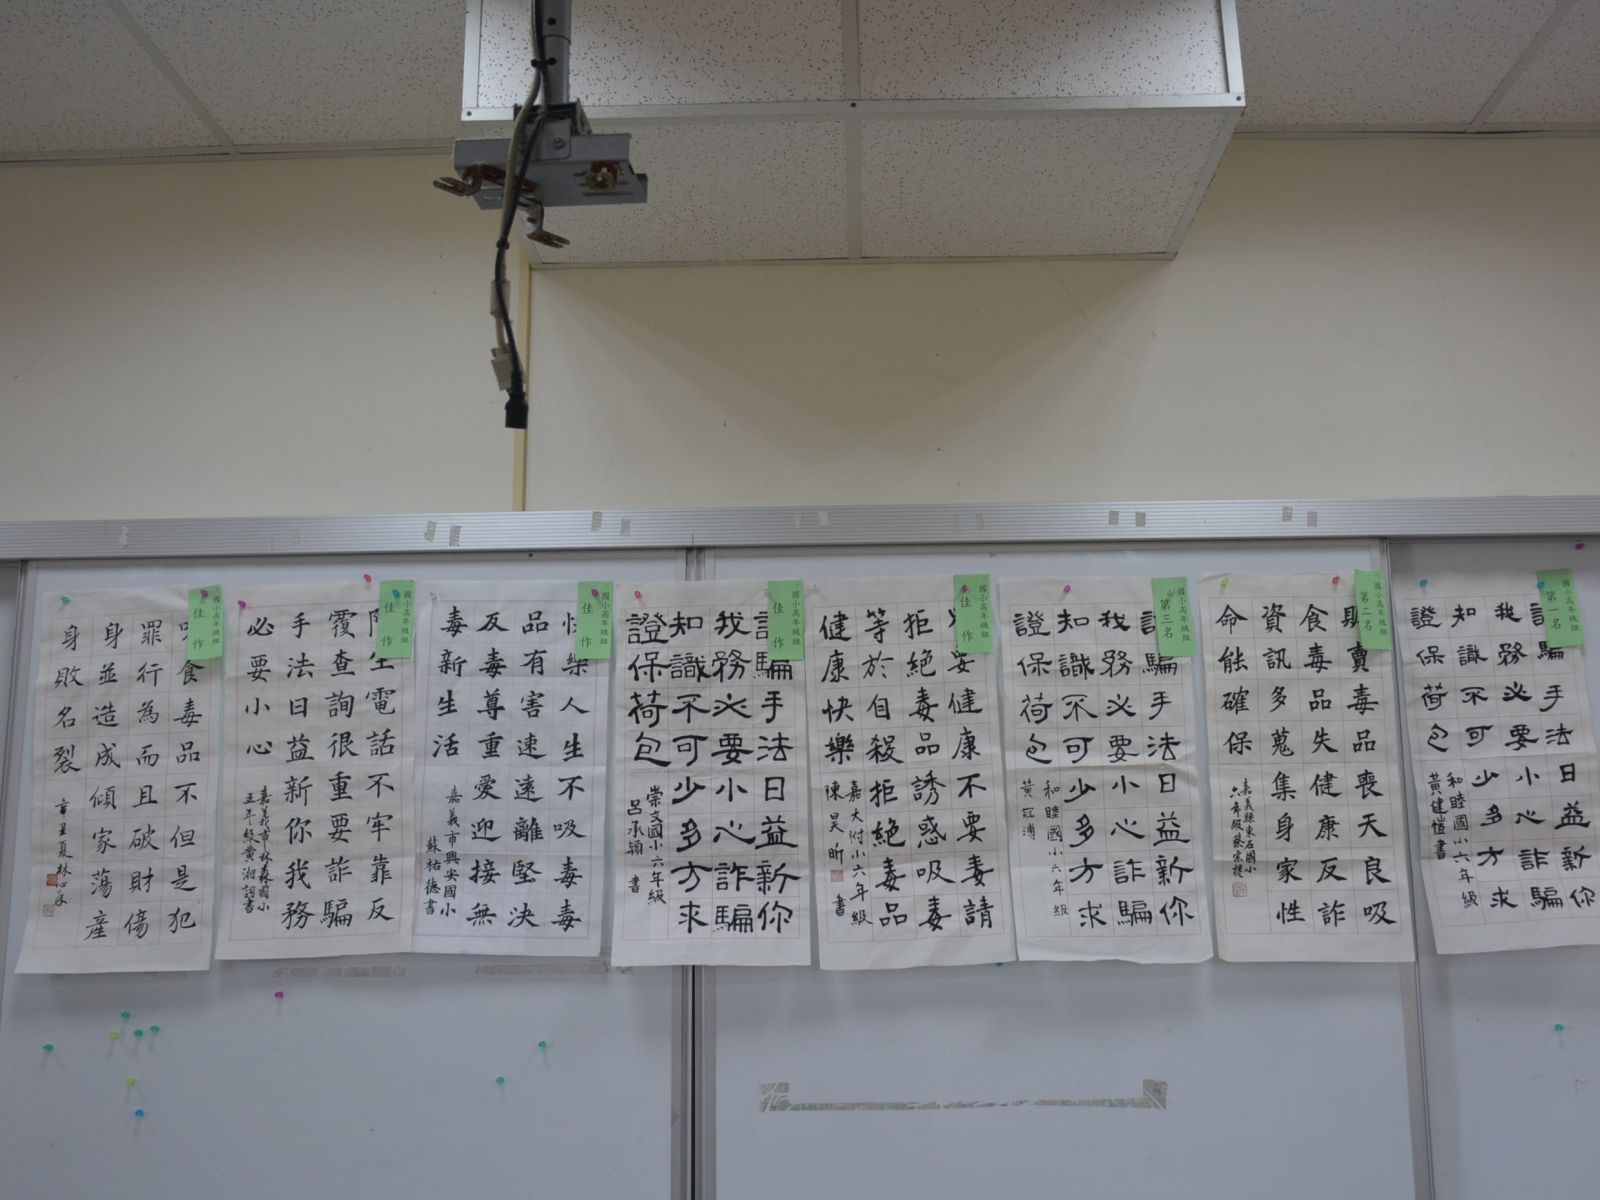 國小高年級組
第一名
騙手法日益新你
我務必要小心詐騙
知識不可少多方求
證保荷包
和睦國小六年級
黃健愷書
國小高年級組
第二名
販賣毒品喪天良吸
食毒品失健康反詐
資訊多蒐集身家性
命能確保
嘉義縣東石國小
六年級蔡宗
國小高年級組
第三名
騙手法日益新你
我務必要小心詐騙
知識不可少多方求
證保荷包
和睦國小六年級
黃冠溥
國小高年級組
佳作
要健康不要毒請
拒絕毒品誘惑吸毒
等於自殺拒絕毒品
健康快樂
嘉大附小六年級
陳昊昕 書
國小高年級組
佳作
騙手法日益新你
我務必要小心詐騙
知識不可少多方求
證保荷包
崇文國小六年級
呂承穎 書
國小高年級組
佳作
快樂人生不吸毒毒
品有害速遠離堅決
反毒尊重愛迎接無
毒新生活
嘉義市興安國小
蘇祐德書
國小高年級組
佳作
生電話不牢靠反
覆查詢很重要詐騙
手法日益新你我務
必要小心
嘉義市林森國小
五年級黃湘詞書
國小高年級組
佳作
食毒品不但是犯
罪行為而且破財傷
身並造成傾家蕩產
身敗名裂
辛丑夏林心